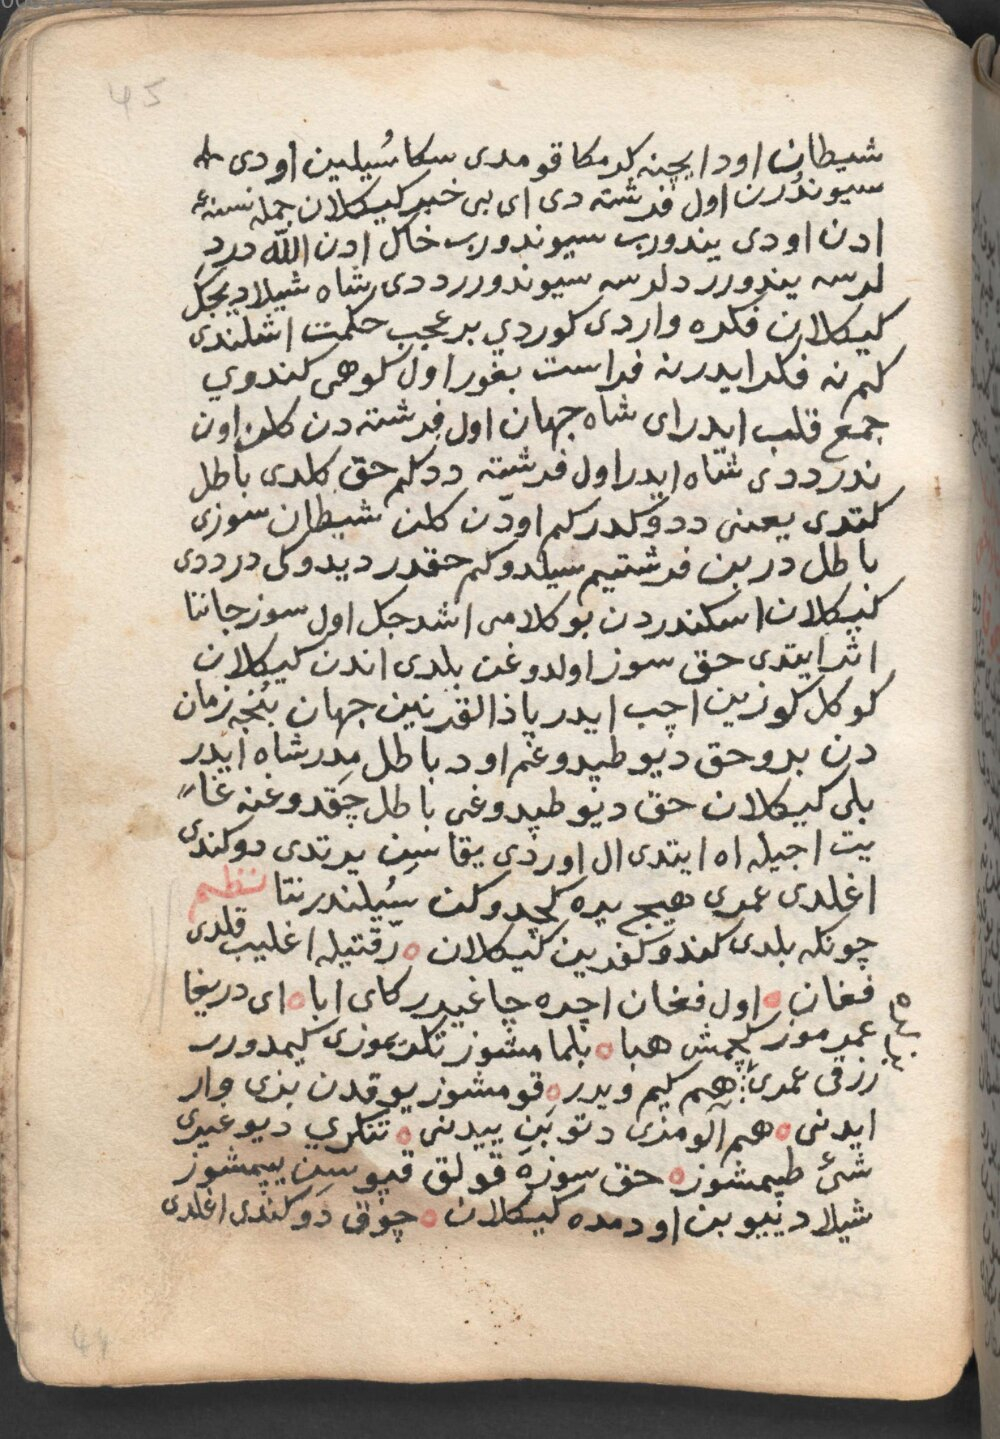 45
شیطان اود ایچنه کرمکا قومدی سکا سُیلین اودی
سیوندُرن اول فرشته دی ای بی خبر کیکلان جمله نسنهٔ
ادن اودی یندورب سیوندورب خاکل ادن الله درد
لرسه یندورر دلرسه سیوندورر ددی شاه شیلا دیجکل
کیکلان فکره واردی کوردی بر عجب حکمت اشلندی
کم نه فکر ایدر نه فراست بغور اول کوهی کندوی
جمع قلب ایدر ای شاه جهان اول فرشته دن کلن اون
ندر ددی شاه ایدر اول فرشته ددکم حق کلدی باطل
کتدی یعنی ددوکلدر کم اودن کلن شیطان سوزی
باطل در بن فرشتیم سیلدوکم حقدر دیدوکی در ددی
کیکلان اسکندردن بو کلامی اشدجکل اول سوز جاننا
اثر ایتدی حق سوز اولدوغن بلدی اندن کیکلان
کوکل کوزین اچب ایدر یا ذالقرنین جهان بُنجه زمان
دن برو حق دیو طپدوغم اود باطل مِدر شاه ایدر
بلی کیکلان حق دیو طپدوغی باطل چقدوغنه غا
یت اجیله اه ایتدی ال اوردی یقاسِن یرتدی دوکندی
اغلدی عمری هیچ یره کچدوکن سُیلندر نتا نظم
چونکه بلدی کندو کفرین کیکلان ٥ رقّتیله اغلیب قلدی
فغان ٥ اول فغان اچره چاغیدر کای ابا ٥ ای دریغا
عمرموز کچمش هبا ٥ بلمامشوز تکرموزی کیمدورر
رزقی عمری هم کیم ویدر ٥ قومشوز یوقدن بزی وار
ایدنی ٥ هم آلومزی دتوبَن ییدنی ٥ تنکری دیو غیری
شئ طپمشوز ٥ حق سوزه قولق قپوسِن یپمشوز
شیلا دییوبن اودمده کیکلان ٥ چوق دوکندی اغلدی